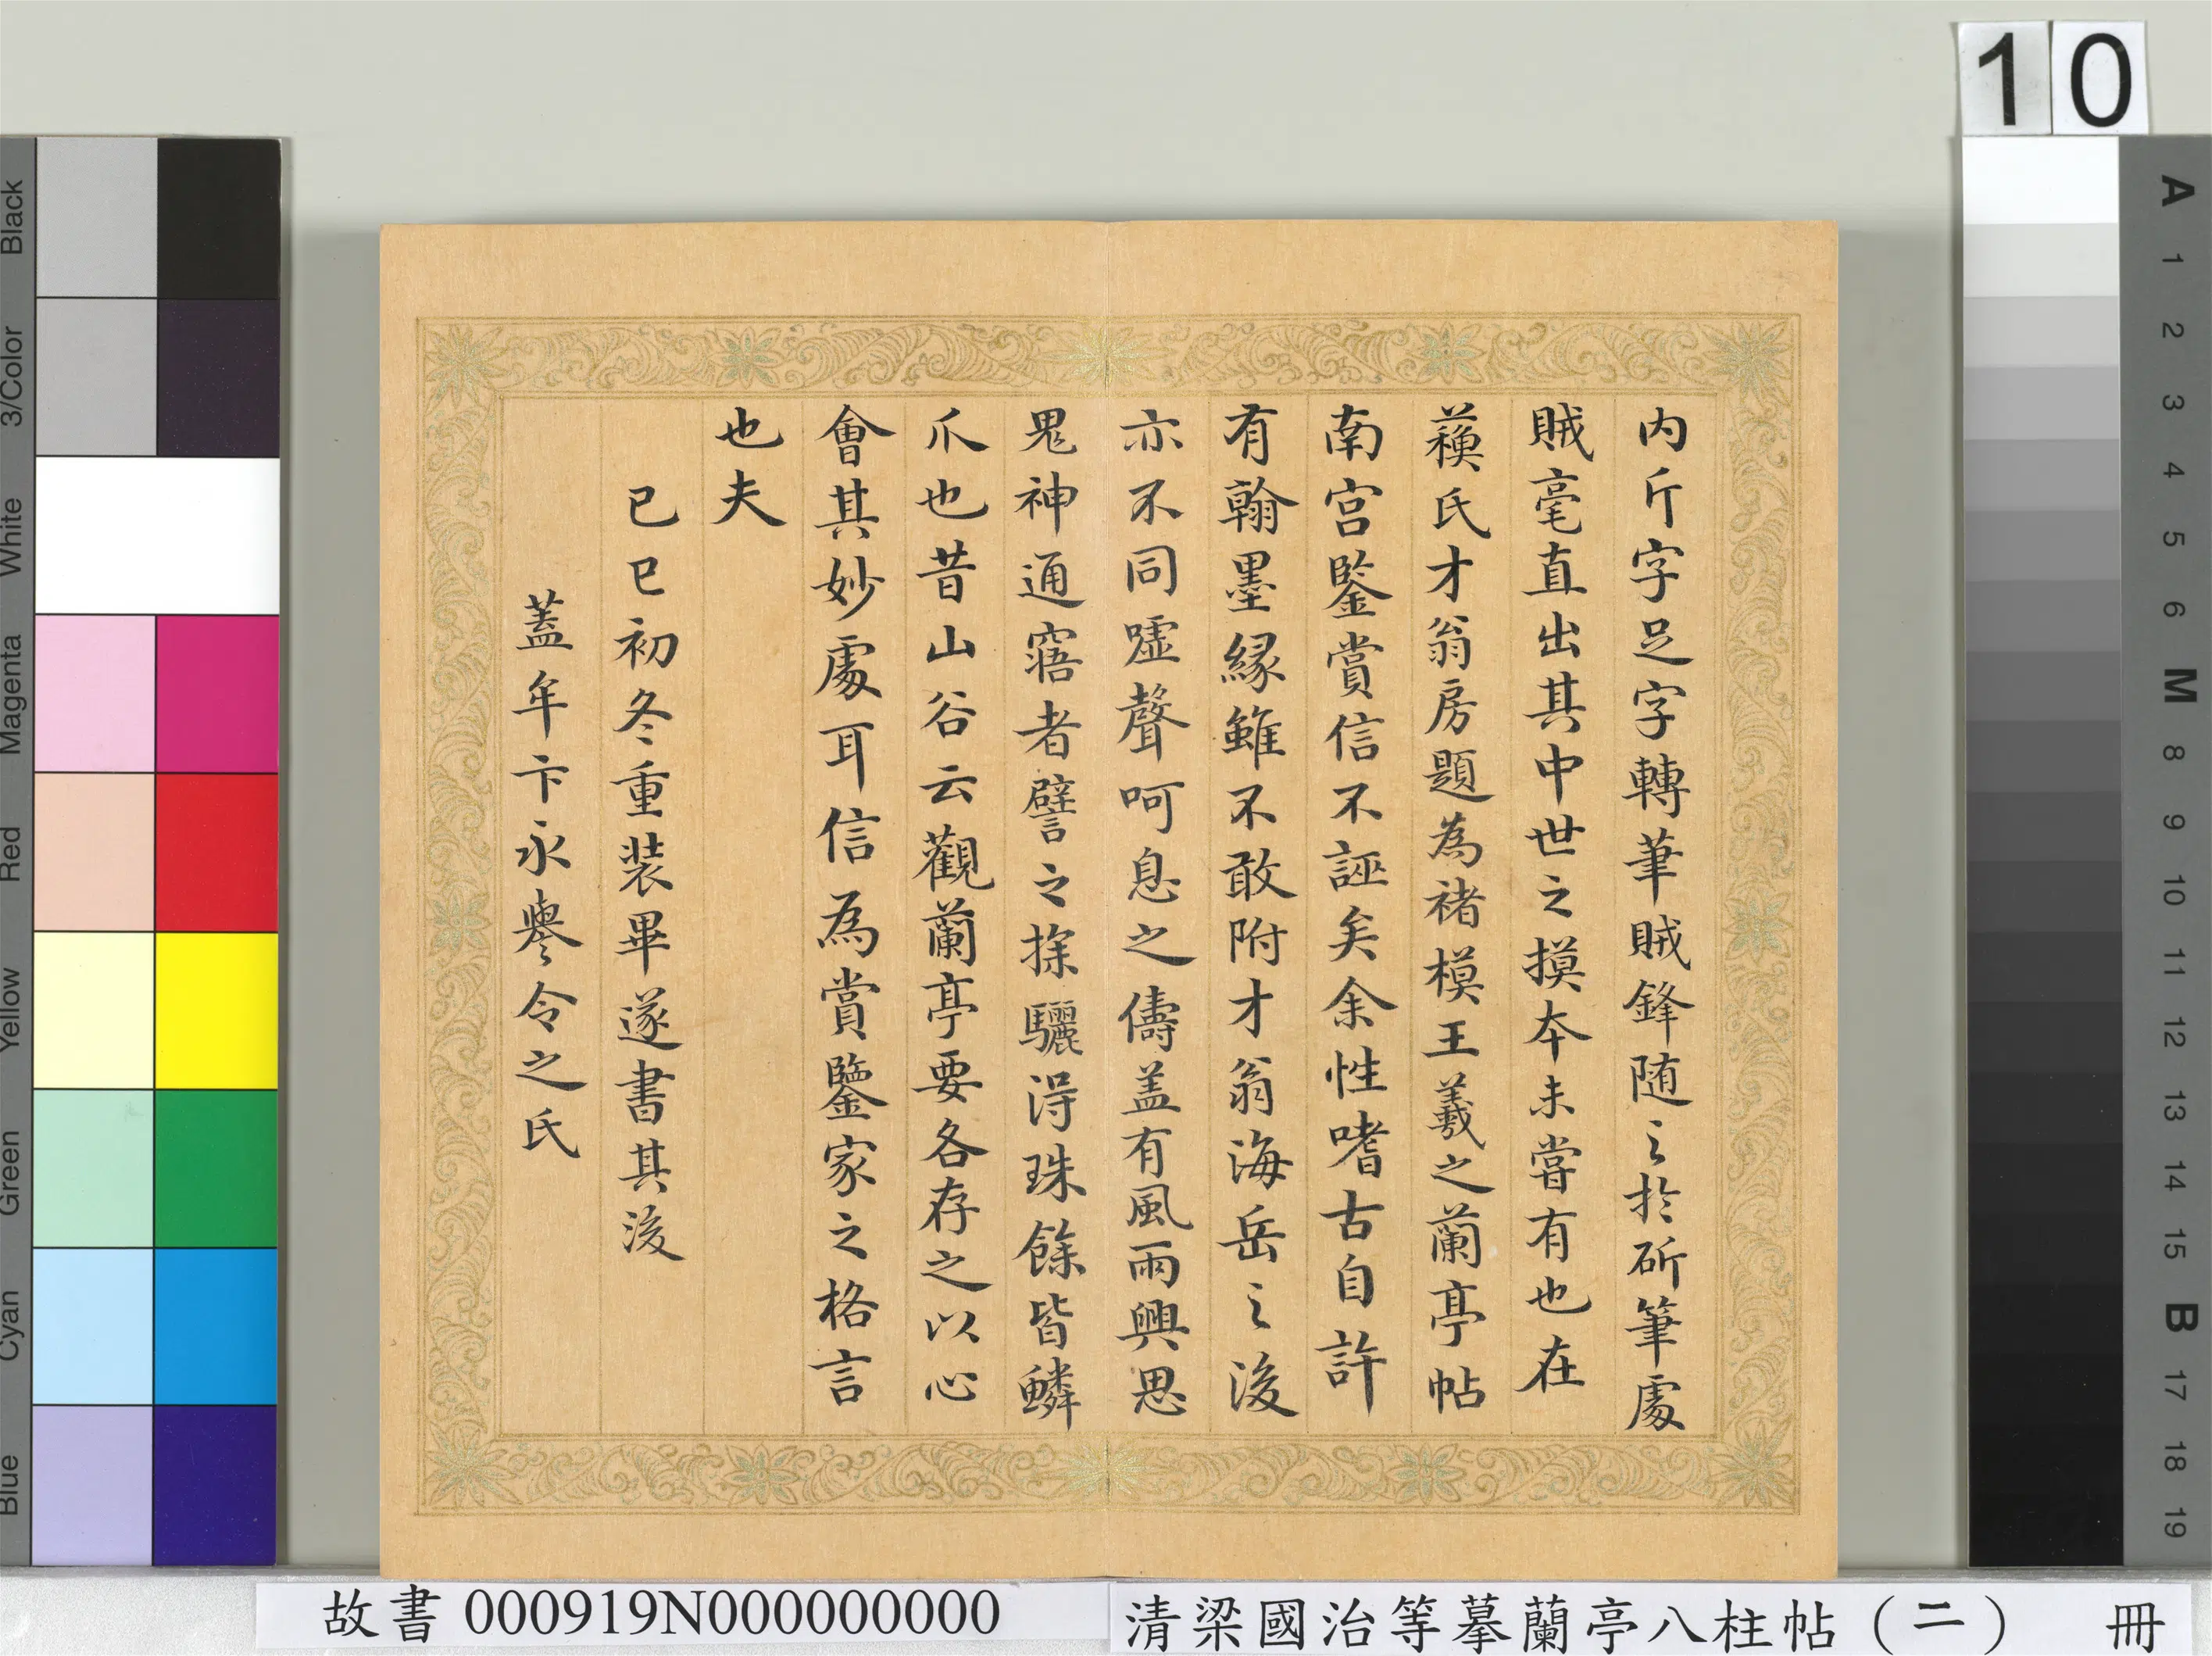 10
內斤字足字轉筆賊鋒随之於斫筆處
賊毫直出其中世之摸本未嘗有也在
蘓氏才翁房題為褚模王羲之蘭亭帖
南宮鑒賞信不誣矣余性嗜古自許
有翰墨緣雖不敢附才翁海岳之後
亦不同嘘聲呵息之儔盖有風雨興思
鬼神通寤者譬之探驪得珠餘皆鱗
爪也昔山谷云觀蘭亭要各存之以心
會其妙處耳信為賞鑒家之格言
也夫
已巳初冬重装畢遂書其後
蓋牟卞永譽令之氏
Black
3/Color
White
Magenta
Red
Yellow
Green
Cyan
Blue
A
1
2
3
4
5
6
M
8
9
10
11
12
13
14
15
B
17
18
19
故書 000919N000000000
清梁國治等摹蘭亭八柱帖（二） 冊